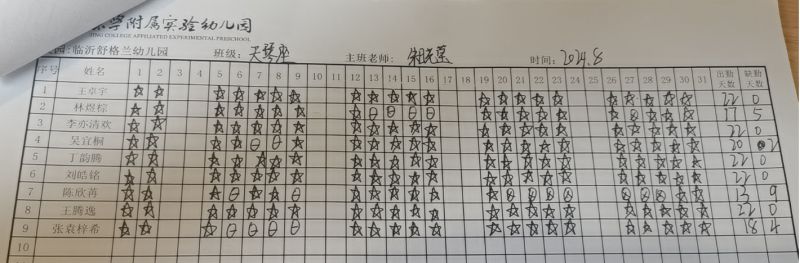 京学附属实验幼儿园
JING COLLEGE AFFILIATED EXPERIMENTAL PRESCHOOL
园:临沂舒格兰幼儿园 班级: 天琴座 主班老师: 时间: 2024.8
序号 姓名 1 2 3 4 5 6 7 8 9 10 11 12 13 14 15 16 17 18 19 20 21 22 23 24 25 26 27 28 29 30 31 出勤天数 缺勤天数
1 王卓宇 ☆ ☆ ☆ ☆ ☆ ☆ ☆ ☆ ☆ ☆ ☆ ☆ ☆ ☆ ☆ ☆ ☆ ☆ ☆ ☆ ☆ ☆ 22 0
2 林煜棕 ☆ ☆ ☆ ☆ ☆ ☆ ☆ ☆ ⊖ ⊖ ⊖ ⊖ ☆ ☆ ☆ ☆ ☆ ☆ ⊗ ☆ ☆ ☆ 17 5
3 李亦清欢 ☆ ☆ ☆ ☆ ☆ ☆ ☆ ☆ ☆ ☆ ☆ ☆ ☆ ☆ ☆ ☆ ☆ ☆ ☆ ☆ ☆ ☆ 22 0
4 吴宜桐 ☆ ☆ ☆ ☆ ⊖ ⊖ ☆ ☆ ☆ ☆ ☆ ☆ ☆ ☆ ☆ ☆ ☆ ☆ ☆ ☆ ☆ ☆ 20 2
5 丁韵腾 ☆ ☆ ☆ ☆ ☆ ☆ ☆ ☆ ☆ ☆ ☆ ☆ ☆ ☆ ☆ ☆ ☆ ☆ ☆ ☆ ☆ ☆ 22 0
6 刘皓铭 ☆ ☆ ☆ ☆ ☆ ☆ ☆ ☆ ☆ ☆ ☆ ☆ ☆ ☆ ☆ ☆ ☆ ☆ ☆ ☆ ☆ ☆ 22 0
7 陈欣苒 ☆ ☆ ☆ ⊖ ☆ ☆ ⊖ ☆ ☆ ☆ ☆ ☆ ☆ ⊗ ⊗ ⊗ ⊗ ⊗ ⊗ ⊗ ☆ ☆ 13 9
8 王腾逸 ☆ ☆ ☆ ☆ ☆ ☆ ☆ ☆ ☆ ☆ ☆ ☆ ☆ ☆ ☆ ☆ ☆ ☆ ☆ ☆ ☆ ☆ 22 0
9 张袁梓希 ☆ ☆ ☆ ⊖ ⊖ ⊖ ⊖ ☆ ☆ ☆ ☆ ☆ ☆ ☆ ☆ ☆ ☆ ☆ ☆ ☆ ☆ ☆ 18 4
10